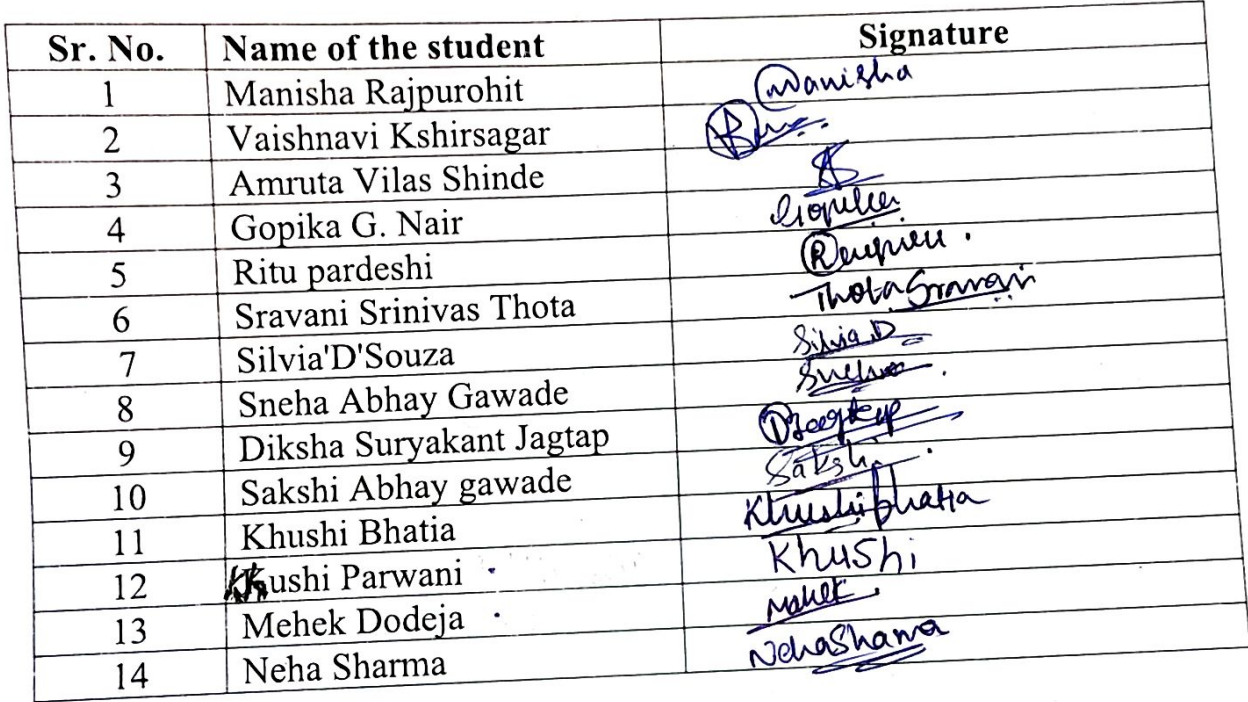 Sr. No. Name of the student Signature
1 Manisha Rajpurohit Manisha
2 Vaishnavi Kshirsagar
3 Amruta Vilas Shinde
4 Gopika G. Nair Gopika
5 Ritu pardeshi
6 Sravani Srinivas Thota Thota Sravani
7 Silvia'D'Souza Silvia D
8 Sneha Abhay Gawade Sneha
9 Diksha Suryakant Jagtap DJagtap
10 Sakshi Abhay gawade Sakshi
11 Khushi Bhatia Khushi bhatia
12 Khushi Parwani Khushi
13 Mehek Dodeja Mehek
14 Neha Sharma NehaSharma